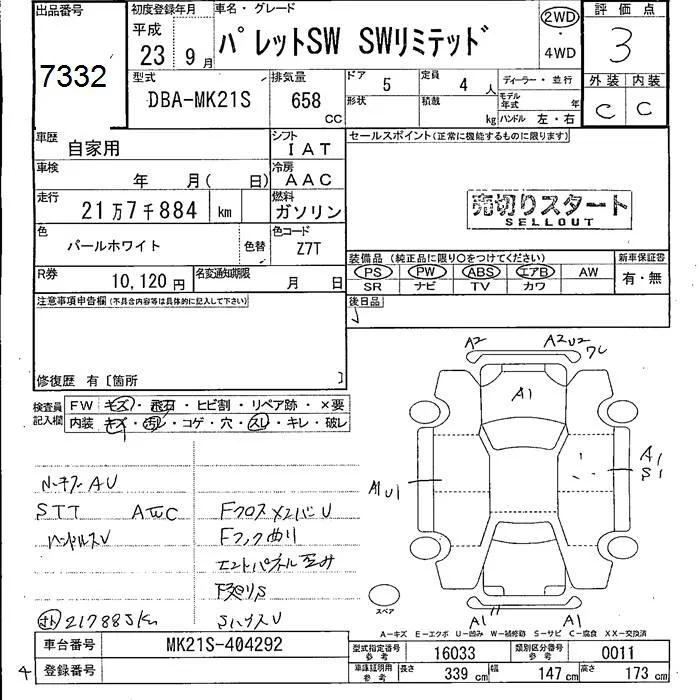 出品番号
7332
初度登録年月
平成
23 9月
車名・グレード
パレットSW SWリミテッド
2WD
・
4WD
評価点
3
外装 内装
C C
型式
DBA-MK21S
排気量
658
CC
ドア
5
定員
4 人
ディーラー・並行
形状
積載
kg
モデル年式
年
ハンドル 左・右
車歴
自家用
シフト
IAT
セールスポイント(正常に機能するものに限ります)
車検
年 月( 日)
冷房
AAC
走行
21万7千884 km
燃料
ガソリン
売切りスタート
SELLOUT
色
パールホワイト
色替
色コード
Z7T
装備品 (純正品に限り○をつけてください)
新車保証書
PS PW ABS エアB AW
有・無
SR ナビ TV カワ
R券
10,120円
名変通知期限
月 日
後日品
注意事項申告欄(不具合内容等は具体的に記入して下さい)
修復歴 有〔箇所 〕
検査員
記入欄
FW キズ・飛石・ヒビ割・リペア跡・×要
内装 キズ・汚レ・コゲ・穴・スレ・キレ・破レ
AU
STT
ハンドルスU
Fクロスメンバ U
Fフック曲り
217885km
A2
A2U2
A1
A1U1
A1
S1
A1
A1
スペア
A-キズ E-エクボ U-凹み W-補修跡 S-サビ C-腐食 XX-交換済
車台番号
MK21S-404292
登録番号
4
型式指定番号
参考
16033
類別区分番号
参考
0011
車庫証明用
参考
長さ
339 cm
幅
147 cm
高さ
173 cm